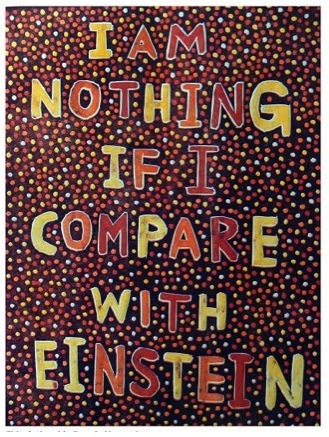 I AM
NOTHING
IF I
COMPARE
WITH
EINSTEIN